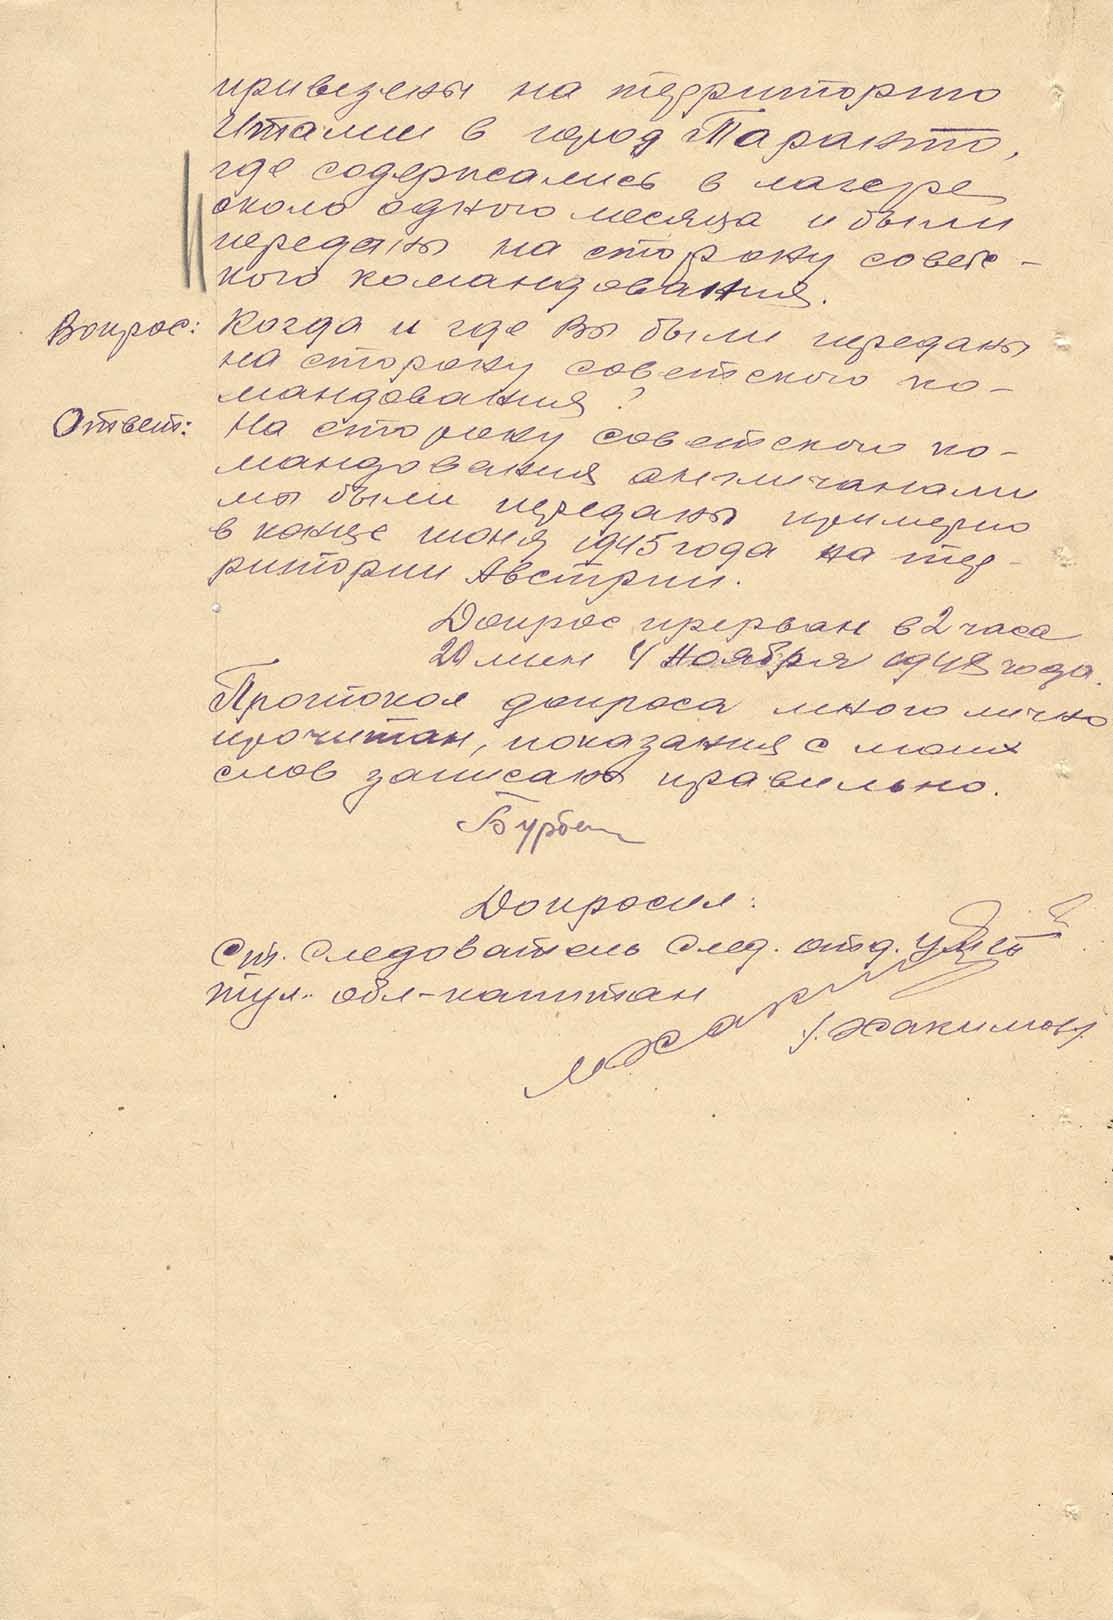 привезены на территорию
Италии в город Таранто,
где содержались в лагере
около одного месяца и были
переданы на сторону советс-
кого командования.
Вопрос: Когда и где Вы были переданы
на сторону советского ко-
мандования?
Ответ: На сторону советского ко-
мандования англичанами
мы были переданы примерно
в конце июня 1945 года на тер-
ритории Австрии.
Допрос прерван в 2 часа
20 мин 4 ноября 1948 года.
Протокол допроса мною лично
прочитан, показания с моих
слов записаны правильно.
Допросил:
Ст. следователь след. отд.
тул. обл-капитан
/Хакимов/